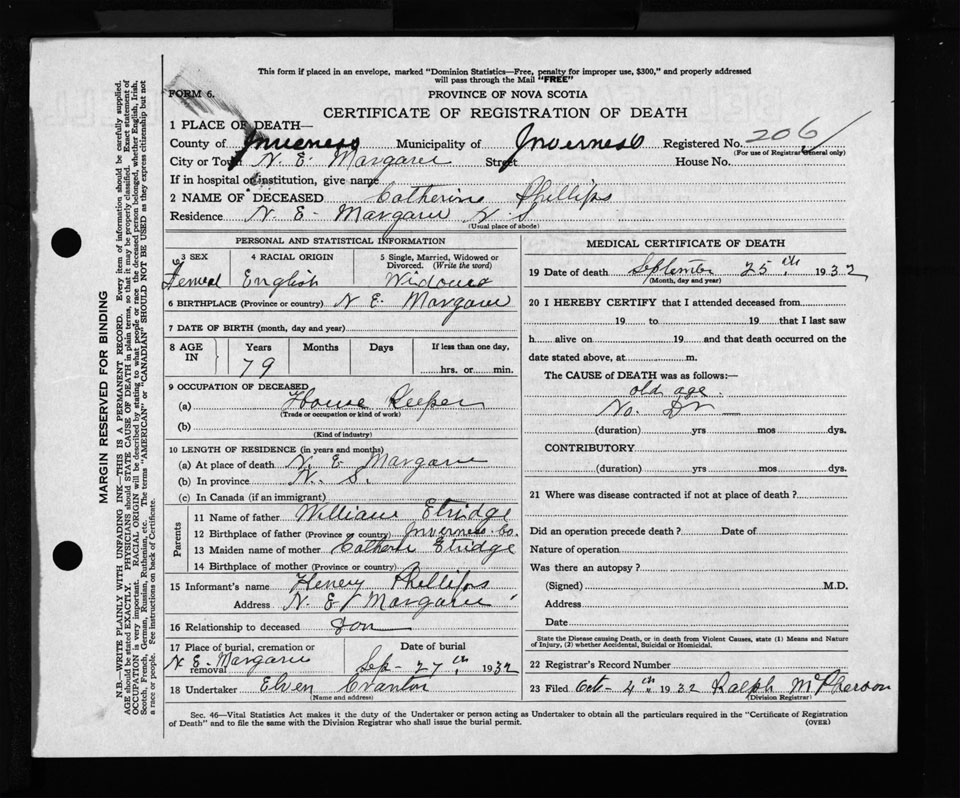 This form if placed in an envelope, marked "Dominion Statistics—Free, penalty for improper use, $300," and properly addressed
will pass through the Mail "FREE"
FORM 6.
PROVINCE OF NOVA SCOTIA
CERTIFICATE OF REGISTRATION OF DEATH
1 PLACE OF DEATH—
County of Inverness Municipality of Inverness Registered No. 206
(For use of Registrar General only)
City or Town N. E. Margaree Street House No.
If in hospital or institution, give name
2 NAME OF DECEASED Catherine Phillips
Residence N. E. Margaree N. S
(Usual place of abode)
PERSONAL AND STATISTICAL INFORMATION
3 SEX
4 RACIAL ORIGIN
5 Single, Married, Widowed or
Divorced. (Write the word)
Femeal English Widowed
6 BIRTHPLACE (Province or country) N E. Margaree
7 DATE OF BIRTH (month, day and year)
8 AGE IN Years Months Days If less than one day,
79 hrs. or min.
9 OCCUPATION OF DECEASED
(a) House Keeper
(Trade or occupation or kind of work)
(b)
(Kind of industry)
10 LENGTH OF RESIDENCE (in years and months)
(a) At place of death N. E. Margaree
(b) In province N. S.
(c) In Canada (if an immigrant)
Parents
11 Name of father William Etridge
12 Birthplace of father (Province or country) Inverness Co.
13 Maiden name of mother Catherine Etridge
14 Birthplace of mother (Province or country)
15 Informant's name Henery Phillips
Address N. E. Margaree
16 Relationship to deceased Son
17 Place of burial, cremation or
removal N. E. Margaree
Date of burial
Sep- 27th 1932
18 Undertaker Elven Cranton
(Name and address)
MEDICAL CERTIFICATE OF DEATH
19 Date of death September 25th, 1932
(Month, day and year)
20 I HEREBY CERTIFY that I attended deceased from
19 to 19 that I last saw
h alive on 19 and that death occurred on the
date stated above, at m.
The CAUSE of DEATH was as follows:—
old age.
No. Dr
(duration) yrs mos dys.
CONTRIBUTORY
(duration) yrs mos dys.
21 Where was disease contracted if not at place of death?
Did an operation precede death? Date of
Nature of operation
Was there an autopsy?
(Signed) M.D.
Address
Date
State the Disease causing Death, or in death from Violent Causes, state (1) Means and Nature
of Injury, (2) whether Accidental, Suicidal or Homicidal.
22 Registrar's Record Number
23 Filed Oct- 4th 1932 Ralph McPherson
(Division Registrar)
Sec. 46—Vital Statistics Act makes it the duty of the Undertaker or person acting as Undertaker to obtain all the particulars required in the "Certificate of Registration
of Death" and to file the same with the Division Registrar who shall issue the burial permit.
(OVER)
MARGIN RESERVED FOR BINDING
N.B.—WRITE PLAINLY WITH UNFADING INK—THIS IS A PERMANENT RECORD. Every item of information should be carefully supplied.
AGE should be stated EXACTLY. PHYSICIANS should STATE CAUSE OF DEATH in plain terms, so that it may be properly classified. Exact statement of
OCCUPATION is very important. RACIAL ORIGIN will be described by stating to what people or race the deceased person belonged, whether English, Irish,
Scotch, French, German, Russian, Ruthenian, etc. The terms "AMERICAN" or "CANADIAN" SHOULD NOT BE USED as they express citizenship but not
a race or people. See instructions on back of Certificate.